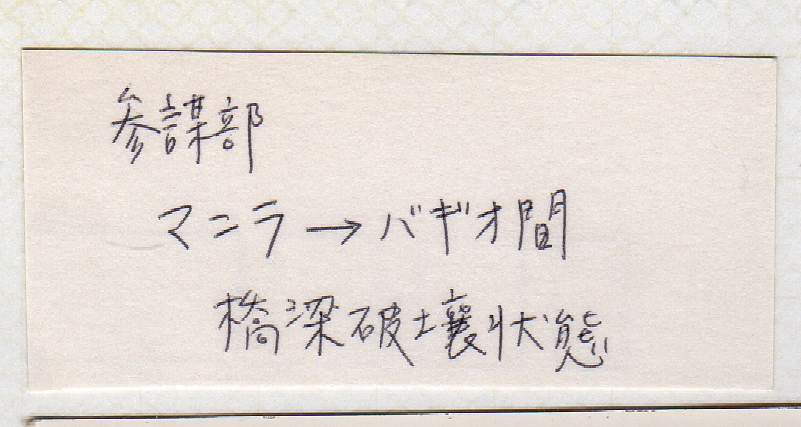 参謀部
マニラ→バギオ間
橋梁破壊状態